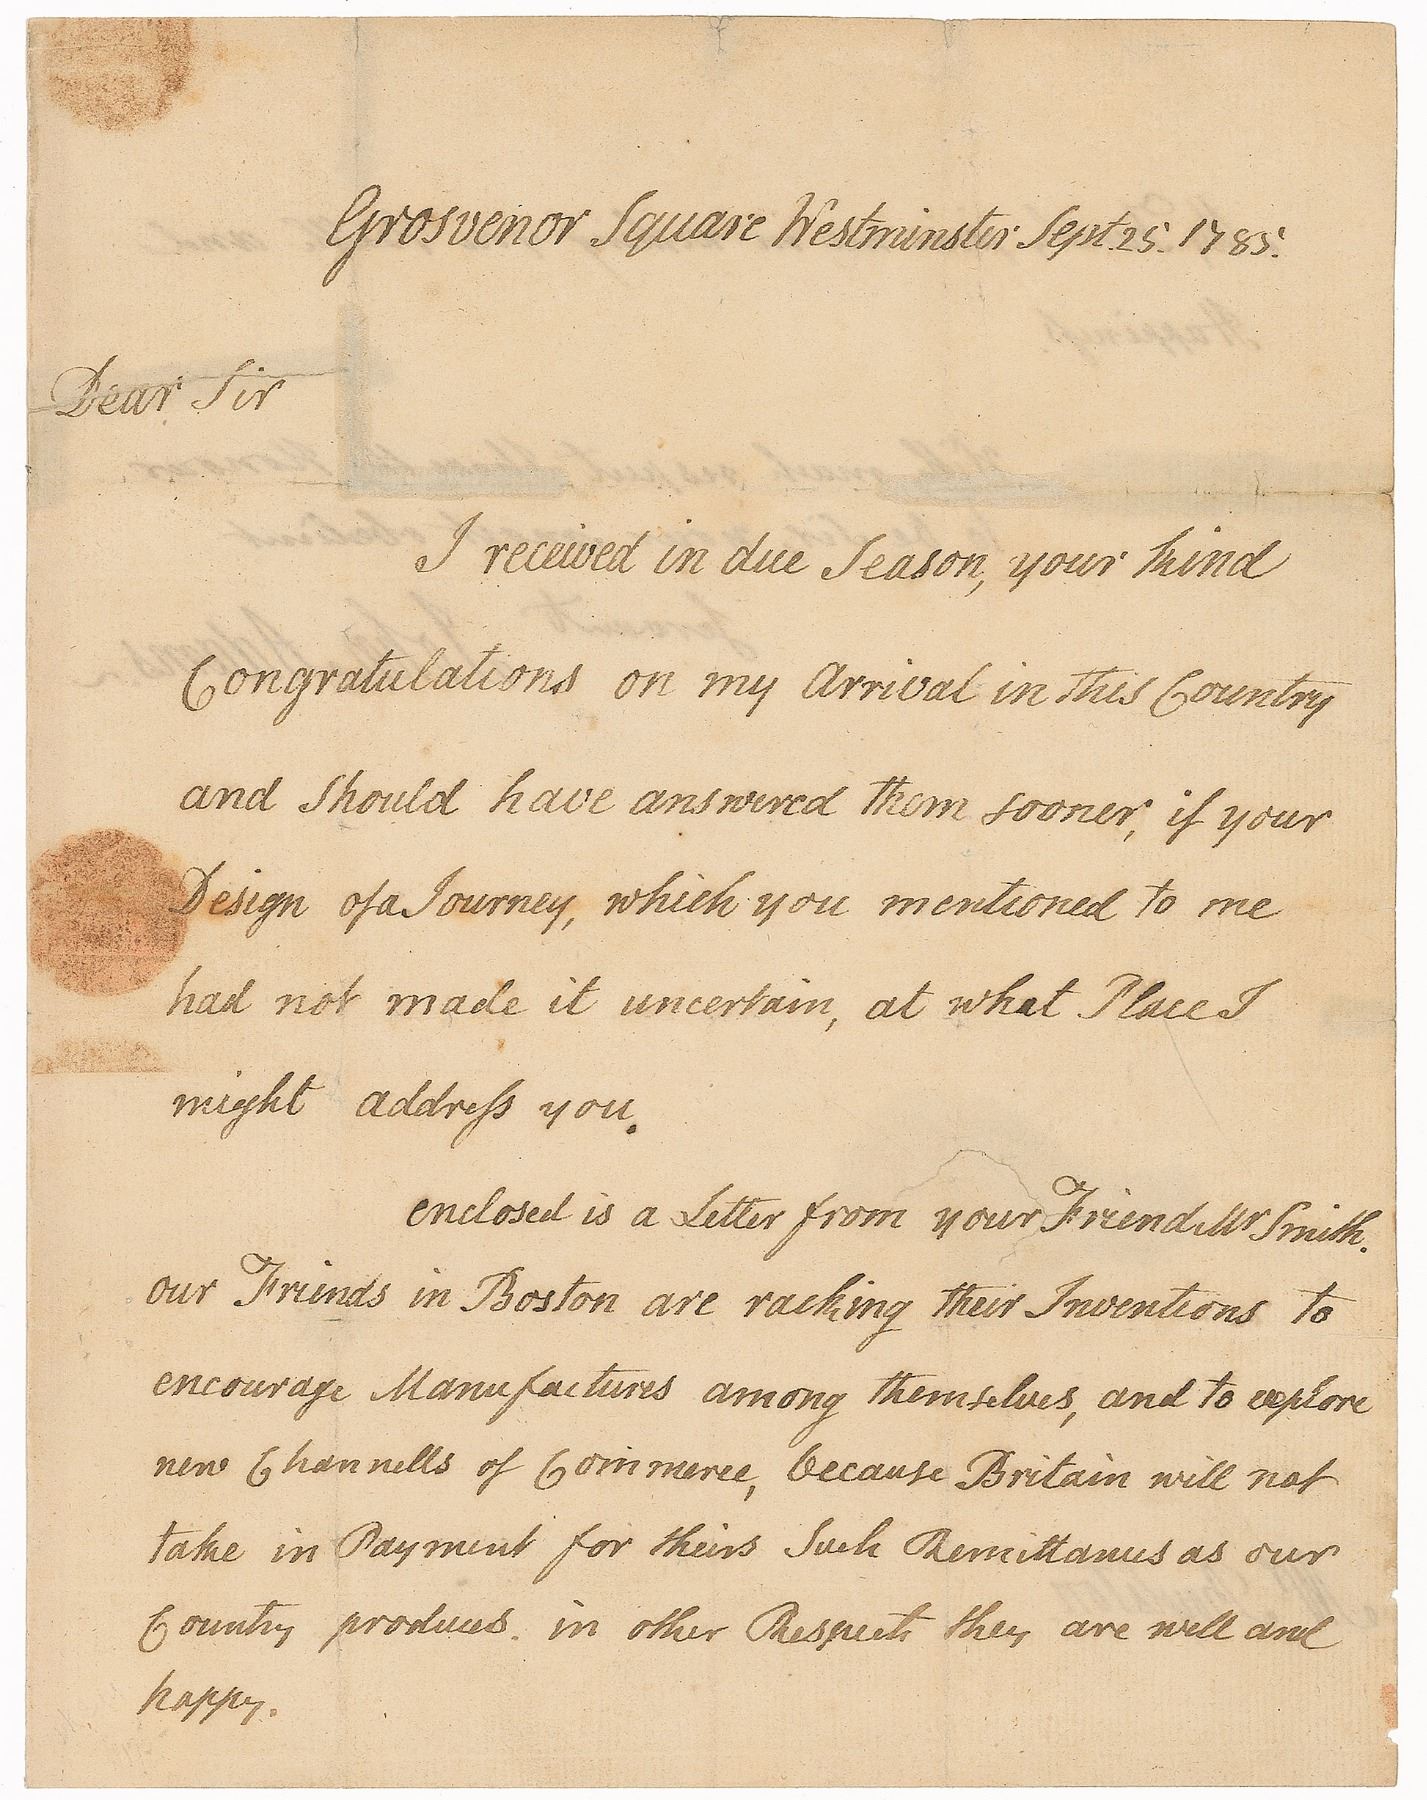 Grosvenor Square Westminster Sept. 25. 1785.
Dear Sir
I received in due Season, your kind
Congratulations on my Arrival in this Country
and should have answered them sooner, if your
Design of a Journey, which you mentioned to me
had not made it uncertain, at what Place I
might address you.
enclosed is a Letter from your Friend Mr Smith.
our Friends in Boston are racking their Inventions to
encourage Manufactures among themselves, and to explore
new Channells of Commerce, because Britain will not
take in Payment for theirs Such Remittances as our
Country produces. in other Respects they are well and
happy.